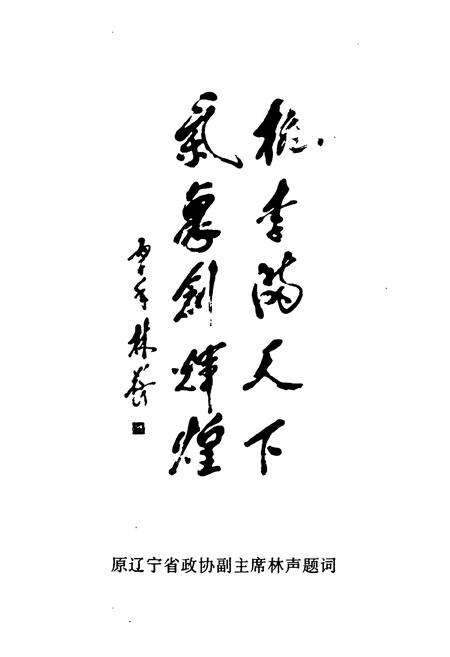 桃李满天下
氣象創輝煌
林声
原辽宁省政协副主席林声题词